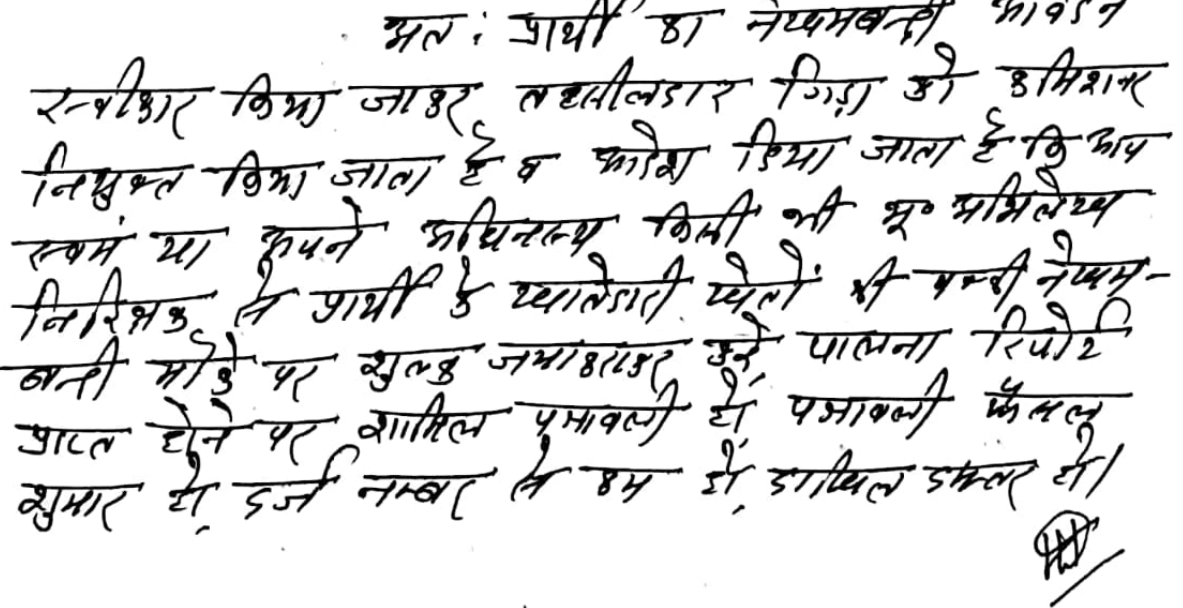 अतः प्रार्थी का नेख्यमबन्दी आवेदन
स्वीकार किया जाकर तहसीलदार गिड़ा को कमिशनर
नियुक्त किया जाता है व आदेश दिया जाता है कि आप
स्वमं या अपने अधिनस्थ किसी भी भू॰ अभिलेख
निरिक्षक से प्रार्थी के ख्यातेदारी ख्येतों की पक्की नेख्यम-
बन्दी मौके पर शुल्क जमा कराकर करें पालना रिपोर्ट
प्राप्त होने पर शामिल पत्रावली हों, पत्रावली फैसल
शुमार हो, दर्ज नम्बर से कम हों, दाखिल दफ्तर हो।